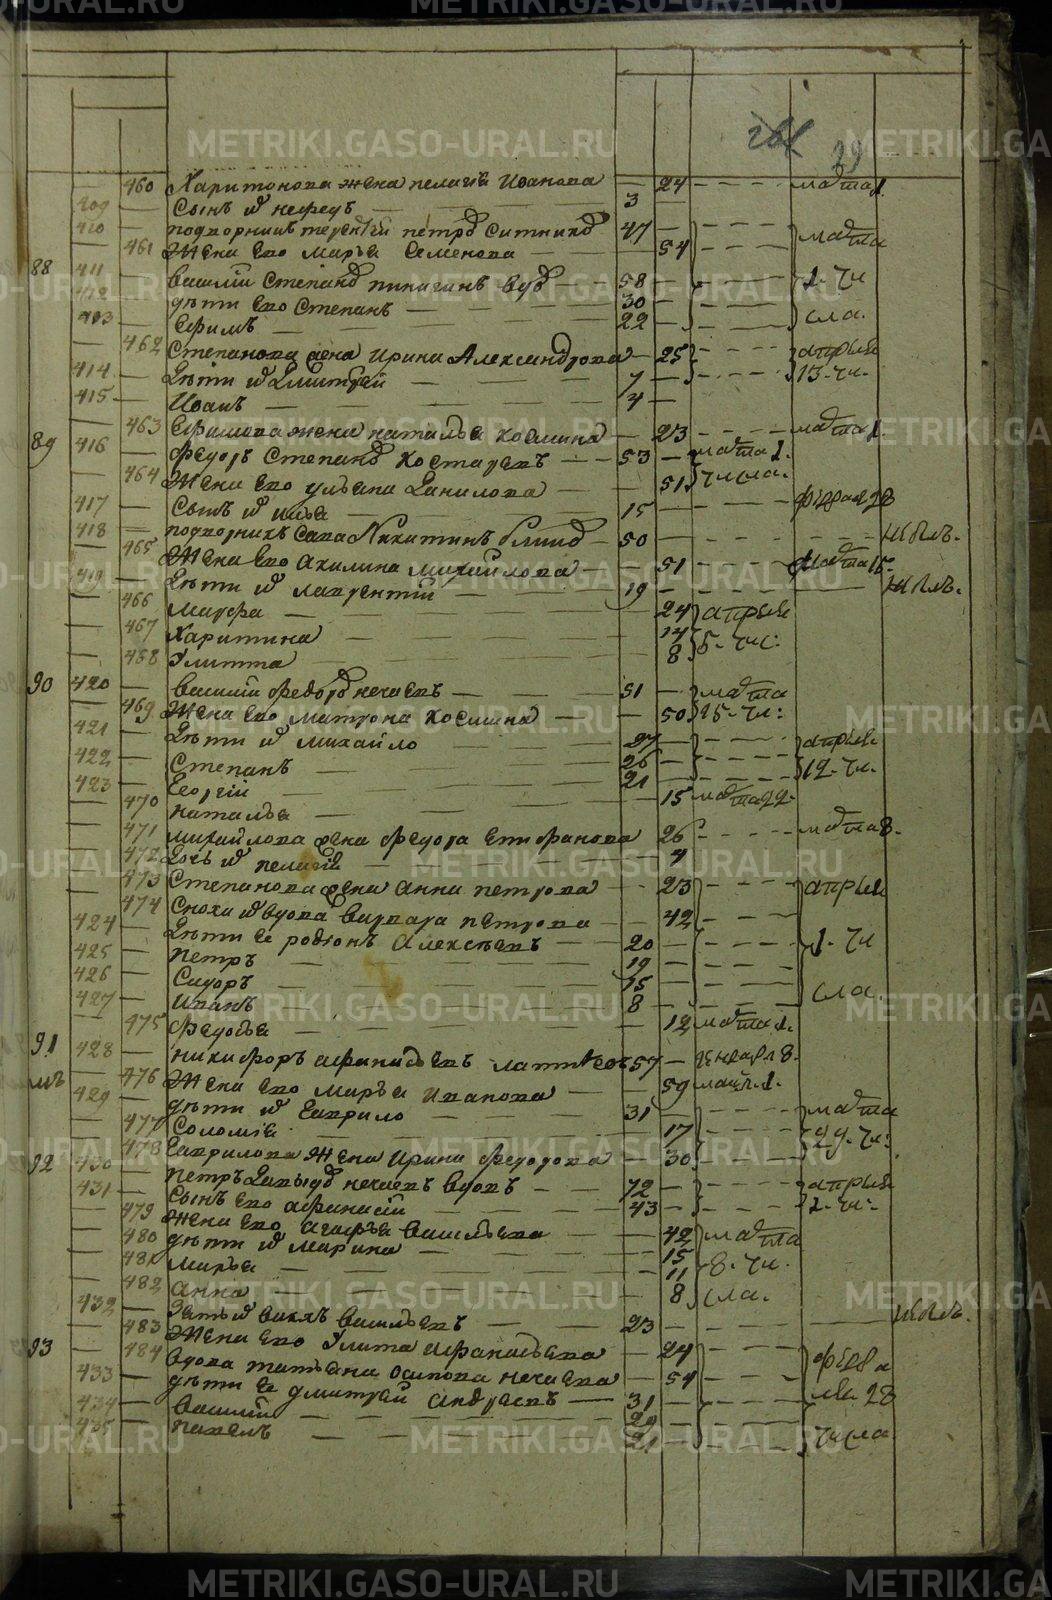 29
460 Харитонова жена пелагiя Иванова — 24 марта 1
409 Сынъ их нефедъ — 3
410 подворникъ терентiй петров Ситников 47 марта
461 Жена Ево марья Семенова — 54
88 411 василiй Степанов пичугинъ вдов — 58 1. чи
412 дѣти Ево Степанъ — 30
413 Ефимъ — 22 сла.
462 Степанова жена Ирина Александрова — 25 апреля
414 Дѣти их Дмитрей — 7 13. чи.
415 Иванъ — 4
463 Ефимова жена наталья Космина — 23 марта 1
89 416 Федоръ Степанов Костаревъ — 53 марта 1.
464 Жена Ево ульяна Данилова — 51 числа.
417 Сынъ их илья — 15 февраля 28
418 подворникъ Сава Никитинъ — 50 небылъ.
465 Жена Ево Акилина михайлова — 51 марта 15
419 Дѣти их лаврентiй — 19 небылъ.
466 Марфа — 24 апреля
467 Харитина — 14 5. чис:
468 Улитта — 8
90 420 василiй Федоров нечаевъ — 51 марта
469 Жена Ево матрона Космина — 50 25. чи:
421 Дѣти их михайло — 27 апреля
422 Степанъ — 26 12. чи.
423 Георгiй — 21
470 наталья — 15 марта 22.
471 михайлова жена Федора Епифанова 26 марта 8.
472 Дочь их пелагiя — 4
473 Степанова жена анна петрова — 23 апреля
474 Сноха их вдова варвара петрова — 42
424 Дѣти Ее родiонъ Алексѣевъ — 20 1. чи
425 петръ — 19
426 Сидоръ — 15 сла.
427 Иванъ — 8
475 Федосья — 12 марта 1.
91 428 никифоръ афанасьевъ 57 генваря 8.
476 Жена Ево марья Иванова — 59
429 дѣти их Гаврило — 31 марта
477 Соломiя — 17 29. чи:
478 Гаврилова Жена Ирина Федорова — 30
92 430 петръ Давыдов нечаевъ вдовъ — 72 апреля
431 Сынъ Ево афанасiй — 43 2. чи:
479 Жена Ево агафья васильева — 42 марта
480 дѣти их марина — 15
481 марья — 11 8. чи.
482 анна — 8 сла.
432 Зять их васильевъ — 23 небылъ.
483 Жена Ево Улита афанасьева — 24
93 484 вдова татьяна осипова нечаева — 54 февра
433 дѣти Ее дмитрей андреевъ — 31 ля 28
434 василiй — 29
435 павелъ — 21 числа
METRIKI.GASO-URAL.RU